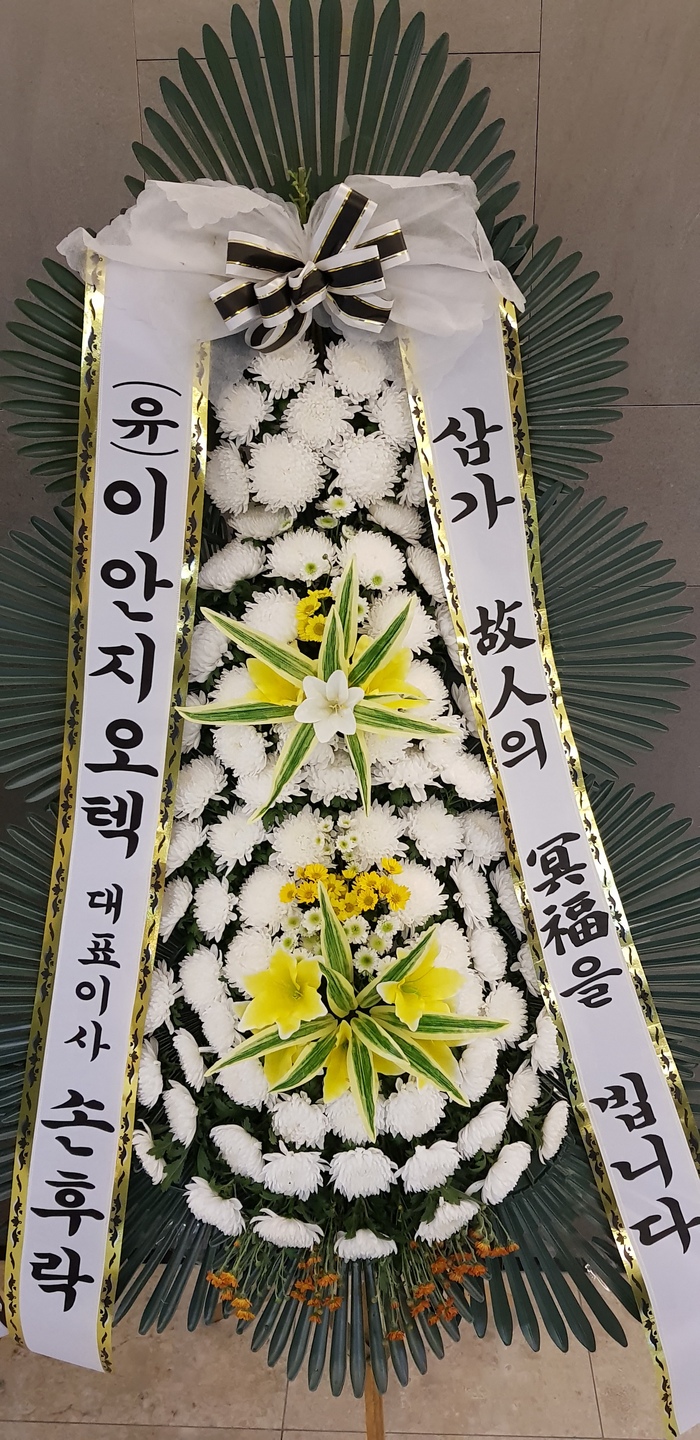 (유)이안지오텍 대표이사 손후락
삼가 故人의 冥福을 빕니다